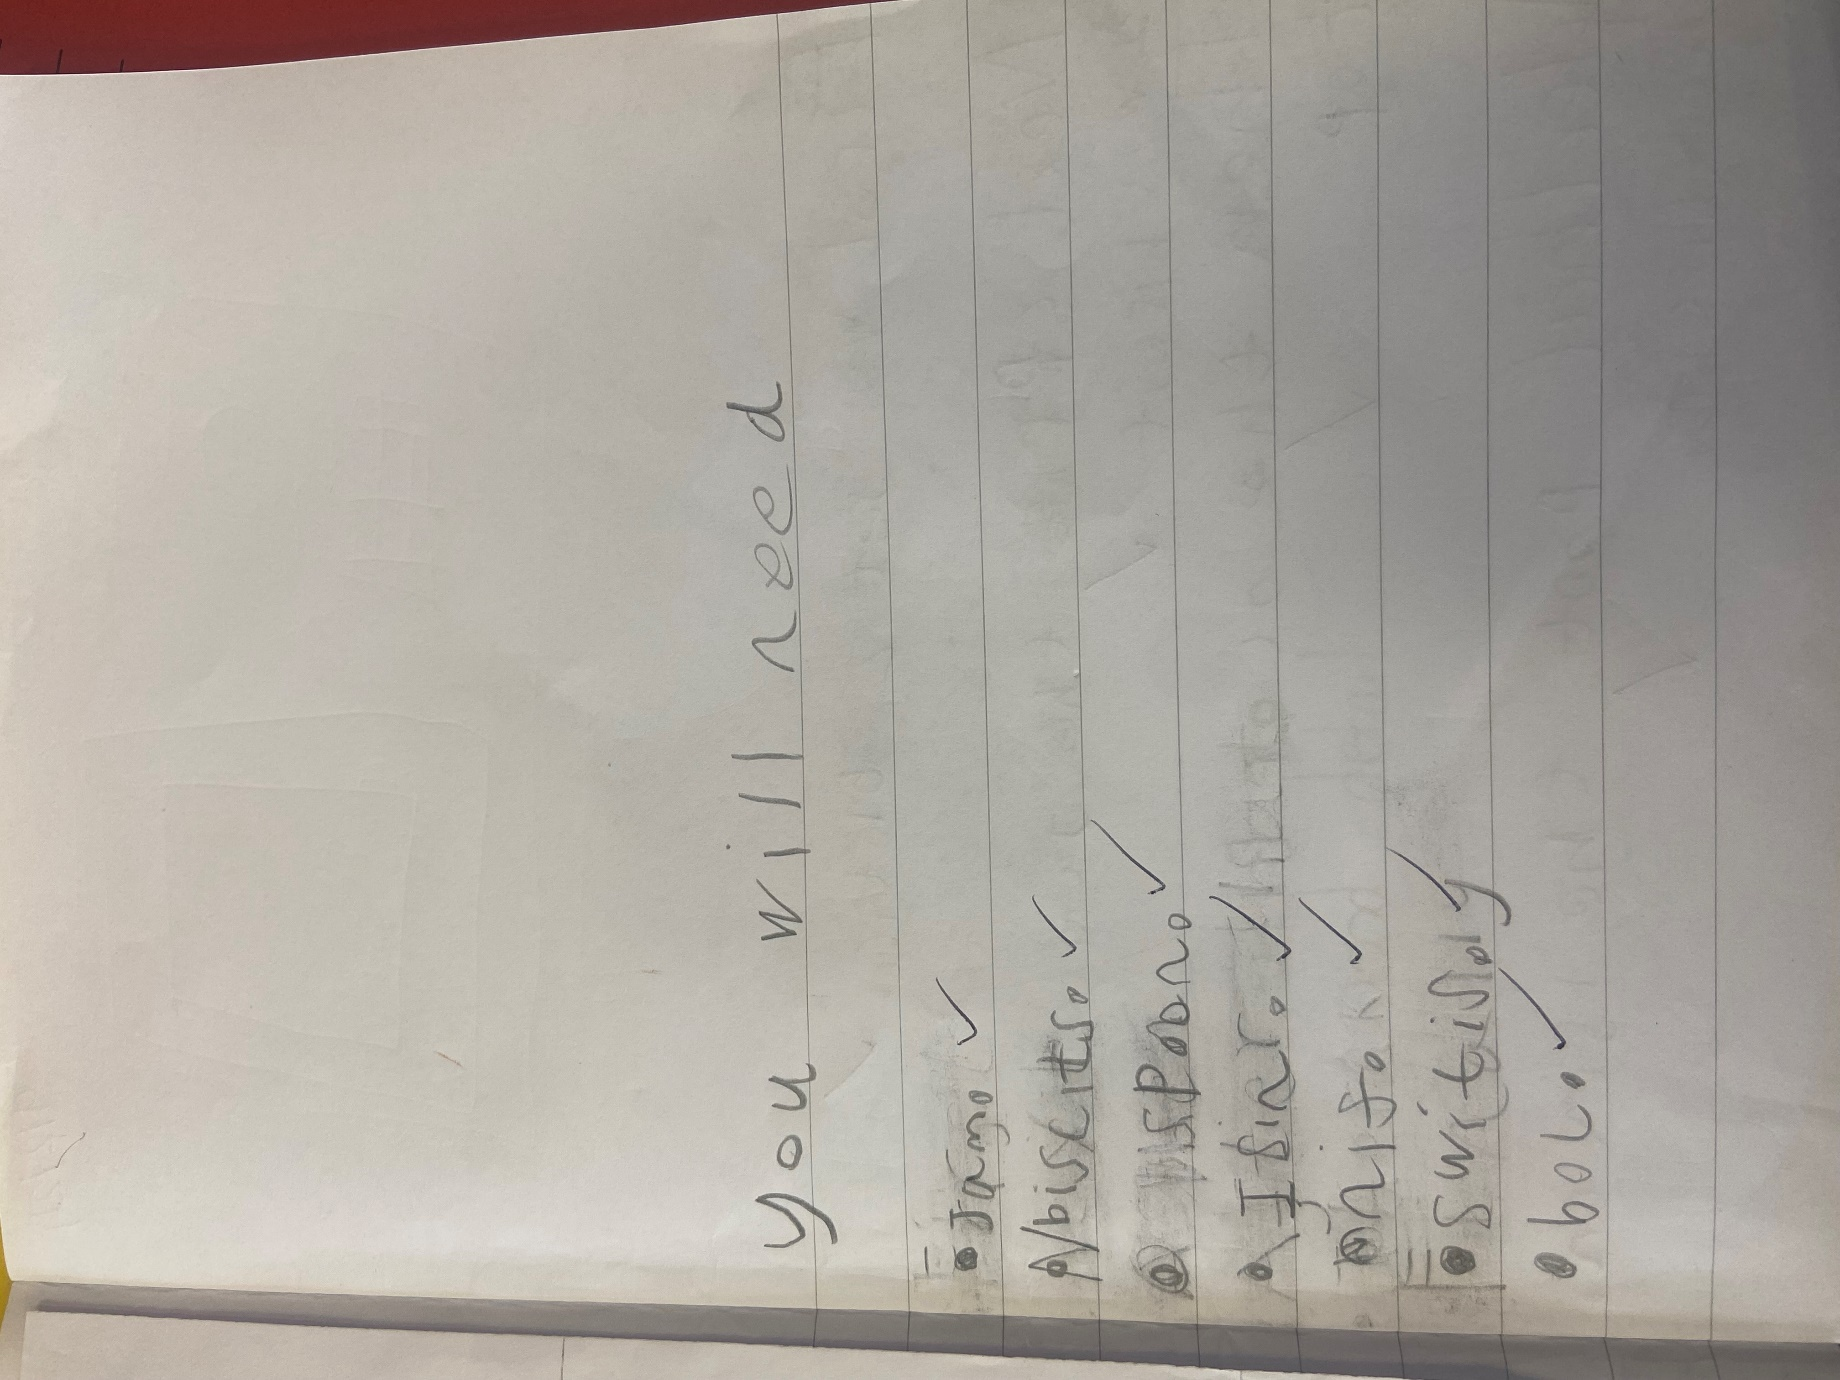 you will need
• Jam.
• biscits.
• sPoon.
• Ifinr.
• nif.
• switisory
• bol.